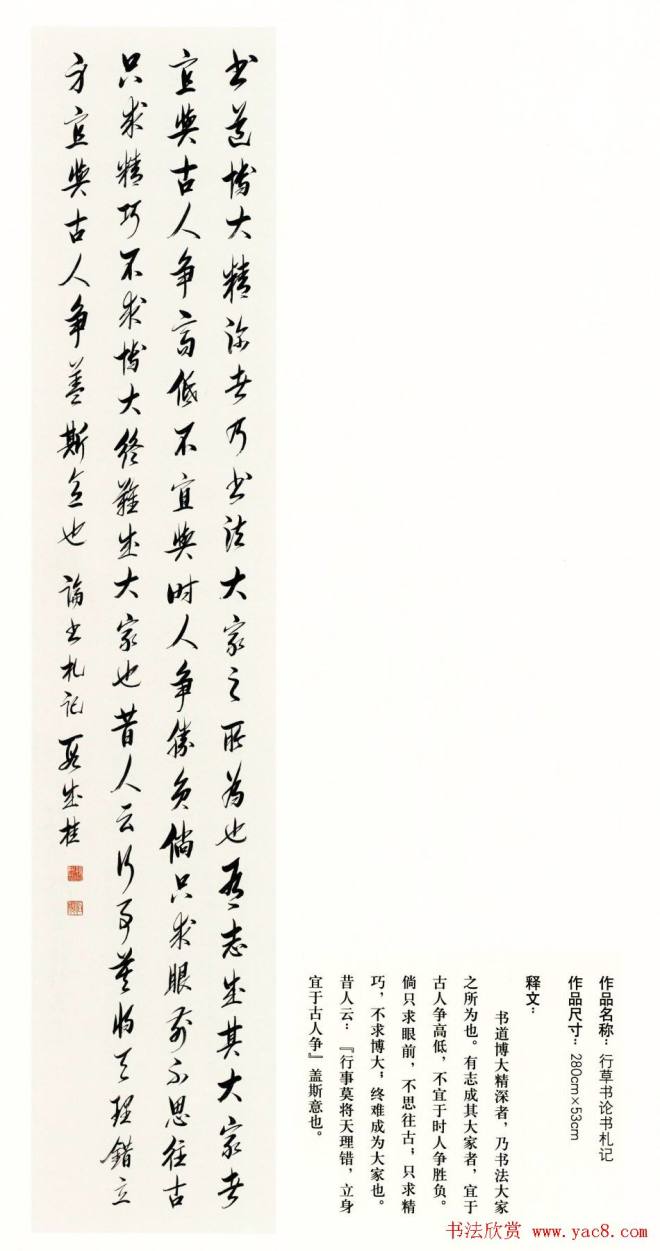 书道博大精深者乃书法大家之所為也有志成其大家者
宜與古人争高低不宜與时人争勝負倘只求眼前不思往古
只求精巧不求博大终難成大家也昔人云行事莫将天理錯立
身宜與古人争盖斯意也 論书札记 段成桂
作品名称：行草书论书札记
作品尺寸：280cm×53cm
释文：
书道博大精深者，乃书法大家
之所为也。有志成其大家者，宜于
古人争高低，不宜于时人争胜负。
倘只求眼前，不思往古；只求精
巧，不求博大；终难成为大家也。
昔人云：『行事莫将天理错，立身
宜于古人争』盖斯意也。
书法欣赏 www.yac8.com